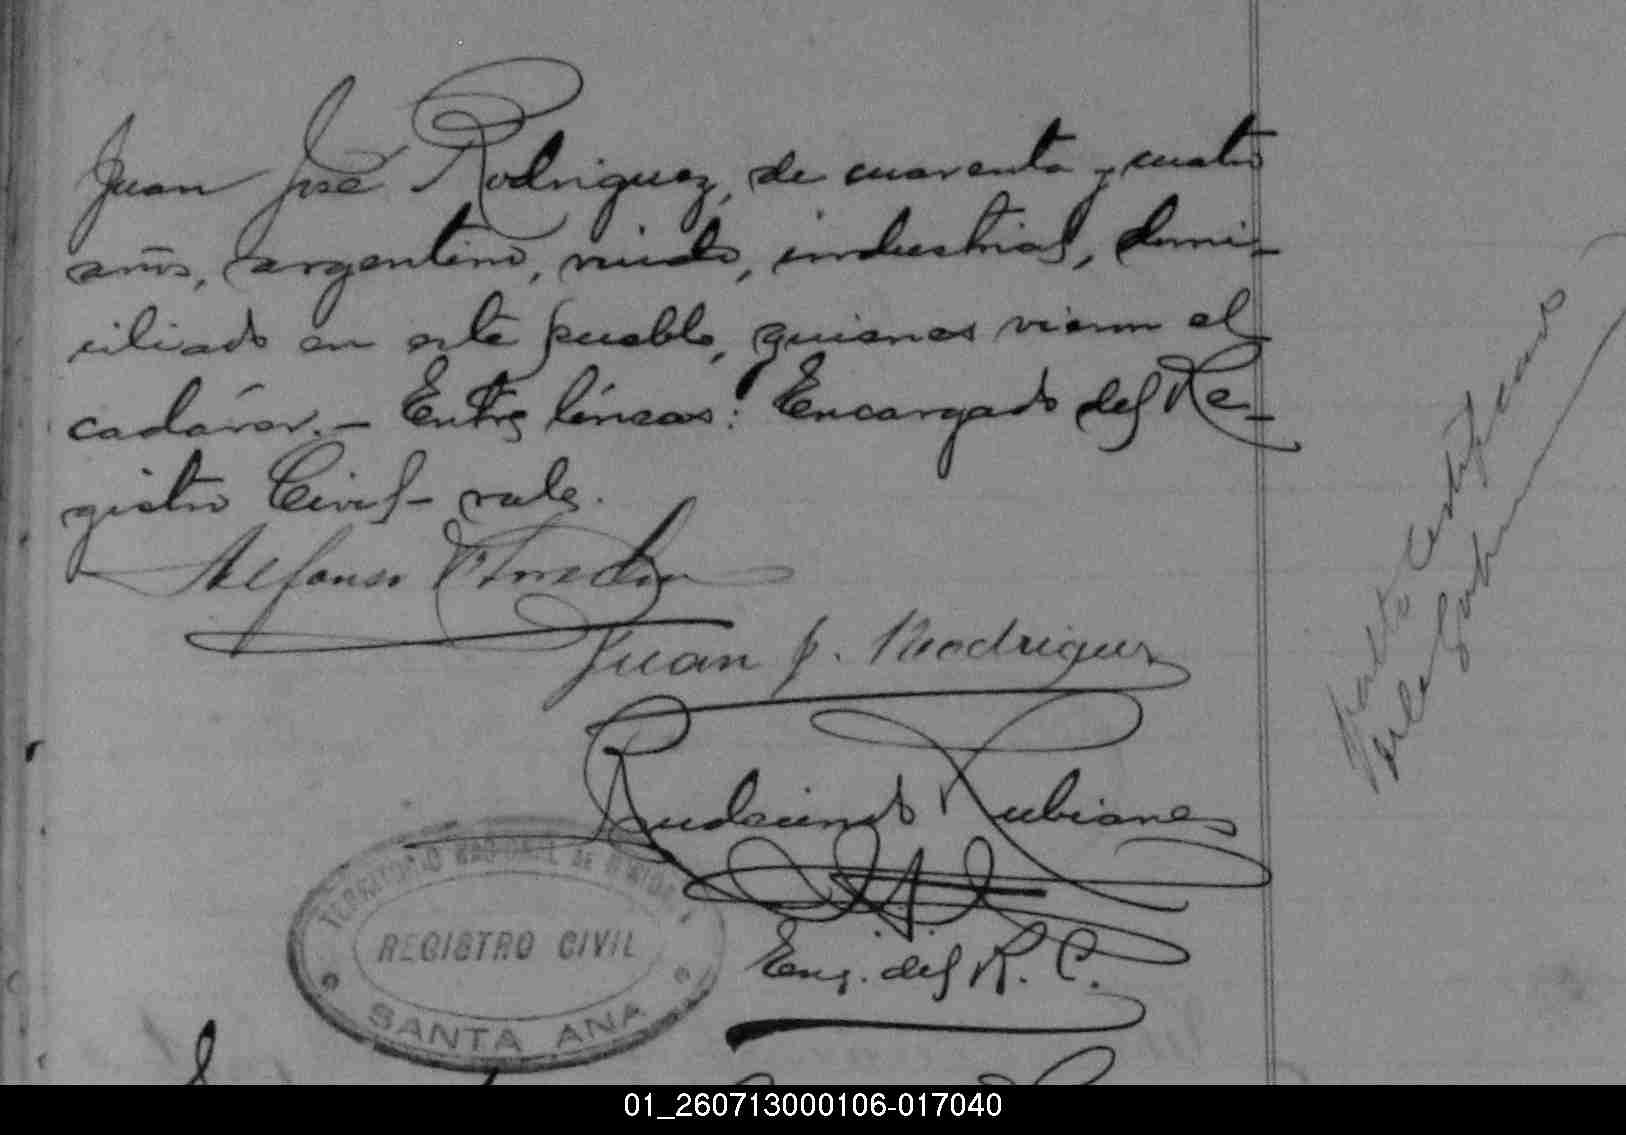 Juan José Rodriguez, de cuarenta y cuatro
años, argentino, viudo, industrial, domi-
ciliado en este pueblo, quienes vieron el
cadáver.- Entre líneas: Encargado del Re-
gistro Civil- vale.
Alfonso
Juan J. Rodriguez
Rudecindo Rubiane
Eng. del R. C.
TERRITORIO NACIONAL DE MISIONES
REGISTRO CIVIL
SANTA ANA
01_260713000106-017040